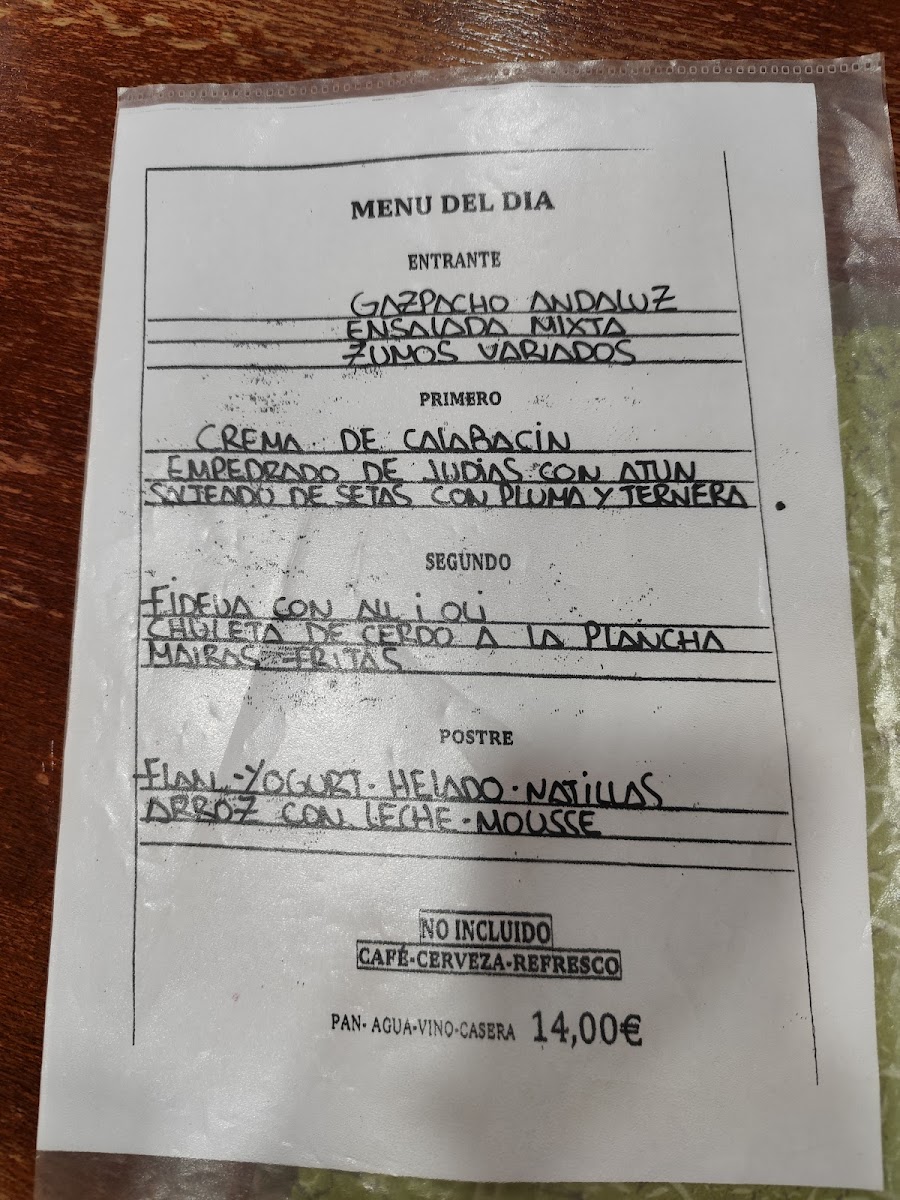 MENU DEL DIA
ENTRANTE
GAZPACHO ANDALUZ
ENSALADA MIXTA
ZUMOS VARIADOS
PRIMERO
CREMA DE CALABACIN
EMPEDRADO DE JUDIAS CON ATUN
SALTEADO DE SETAS CON PLUMA Y TERNERA
SEGUNDO
FIDEUA CON ALL i OLi
CHULETA DE CERDO A LA PLANCHA
MAIRAS FRITAS
POSTRE
FLAN-YOGURT·HELADO·NATILLAS
ARROZ CON LECHE·MOUSSE
NO INCLUIDO
CAFÉ-CERVEZA-REFRESCO
PAN- AGUA-VINO-CASERA 14,00€